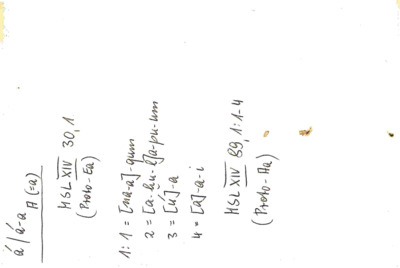 á | á-a A(=a)
MSL XIV 30,1
(Proto-Ea)
1: 1 = [na-a]-qum
2 = [a-ḫu-l]a-pu-um
3 = [ú]-a
4 = [a]-a-i
MSL XIV 89, 1:1-4
(Proto-Aa)